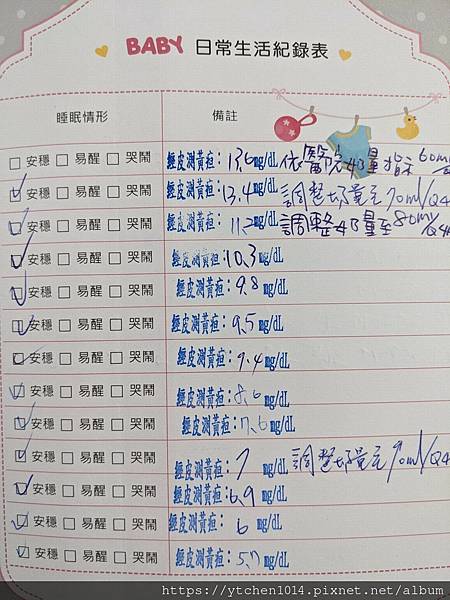 BABY 日常生活紀錄表
睡眠情形 備註
□安穩 □易醒 □哭鬧 經皮測黃疸：13.6mg/dL 依醫院奶量指示 60ml/
☑安穩 □易醒 □哭鬧 經皮測黃疸：13.4mg/dL 調整奶量至70ml/Q4
☑安穩 □易醒 □哭鬧 經皮測黃疸：11.2mg/dL 調整奶量至80ml/Q4H
☑安穩 □易醒 □哭鬧 經皮測黃疸：10.3mg/dL
☑安穩 □易醒 □哭鬧 經皮測黃疸：9.8mg/dL
☑安穩 □易醒 □哭鬧 經皮測黃疸：9.5mg/dL
☑安穩 □易醒 □哭鬧 經皮測黃疸：9.4mg/dL
☑安穩 □易醒 □哭鬧 經皮測黃疸：8.6mg/dL
☑安穩 □易醒 □哭鬧 經皮測黃疸：7.6mg/dL
☑安穩 □易醒 □哭鬧 經皮測黃疸：7mg/dL 調整奶量至90ml/Q4
☑安穩 □易醒 □哭鬧 經皮測黃疸：6.9mg/dL
☑安穩 □易醒 □哭鬧 經皮測黃疸：6mg/dL
☑安穩 □易醒 □哭鬧 經皮測黃疸：5.7mg/dL
https://ytchen1014.pixnet.net/album